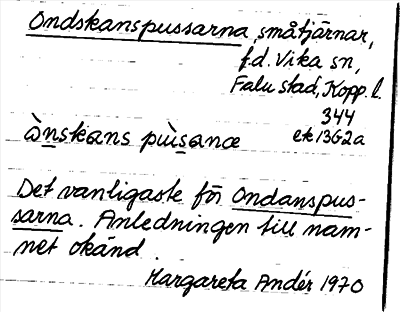 Ondskanspussarna småtjärnar,
f.d. Vika sn,
Falu stad, Kopp. l.
344
ek 13G2a
ònskans pùsanœ
Det vanligaste för Ondanspus-
sarna. Anledningen till nam-
net okänd.
Margareta Andér 1970